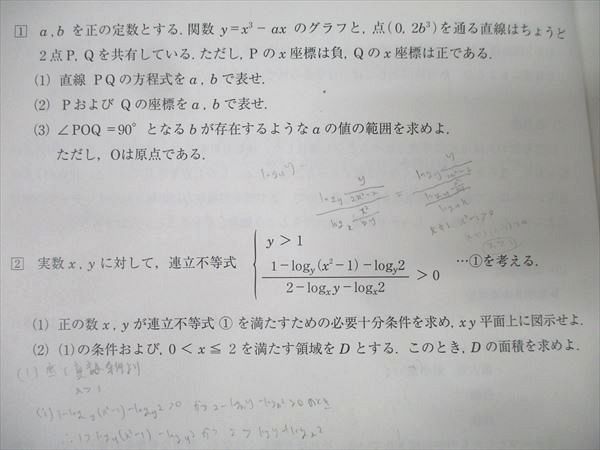 1 a, b を正の定数とする. 関数 y=x³－ax のグラフと, 点(0, 2b³)を通る直線はちょうど
2点P, Qを共有している. ただし, Pのx座標は負, Qのx座標は正である.
(1) 直線 PQ の方程式を a, b で表せ.
(2) P および Q の座標を a, b で表せ.
(3) ∠POQ =90° となる b が存在するような a の値の範囲を求めよ.
ただし, Oは原点である.
2 実数 x, y に対して, 連立不等式 { y > 1
(1－log_y(x²－1)－log_y2)/(2－log_xy－log_x2) > 0 …①を考える.
(1) 正の数 x, y が連立不等式 ① を満たすための必要十分条件を求め, xy 平面上に図示せよ.
(2) (1)の条件および, 0 < x ≦ 2 を満たす領域を D とする. このとき, D の面積を求めよ.
x > 1